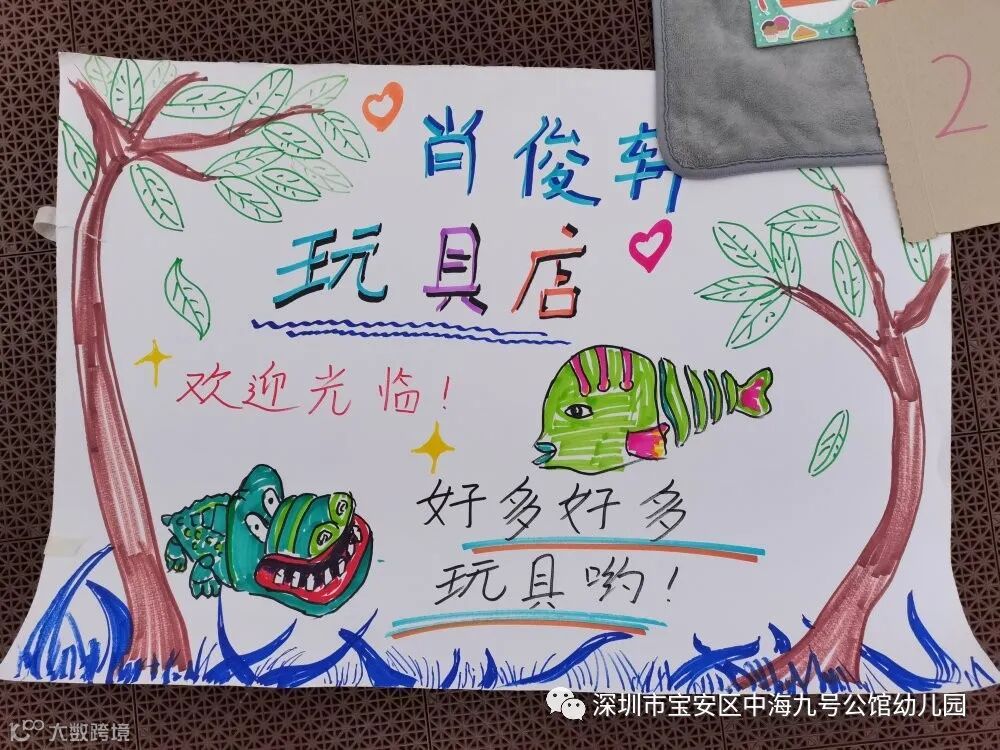 2
肖俊轩
玩具店
欢迎光临！
好多好多
玩具哟！
深圳市宝安区中海九号公馆幼儿园
大数跨境